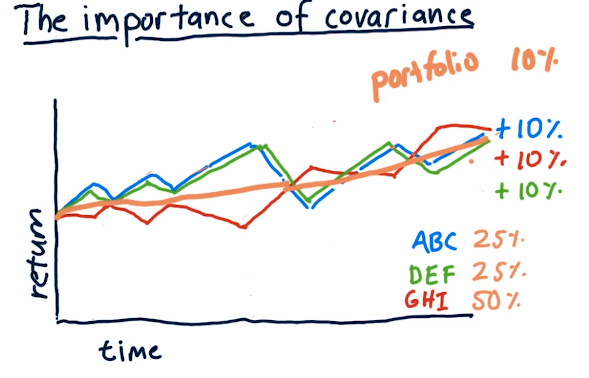 The importance of covariance
portfolio 10%
+10%
+10%.
+10%
ABC 25%
DEF 25%
GHI 50%
return
time